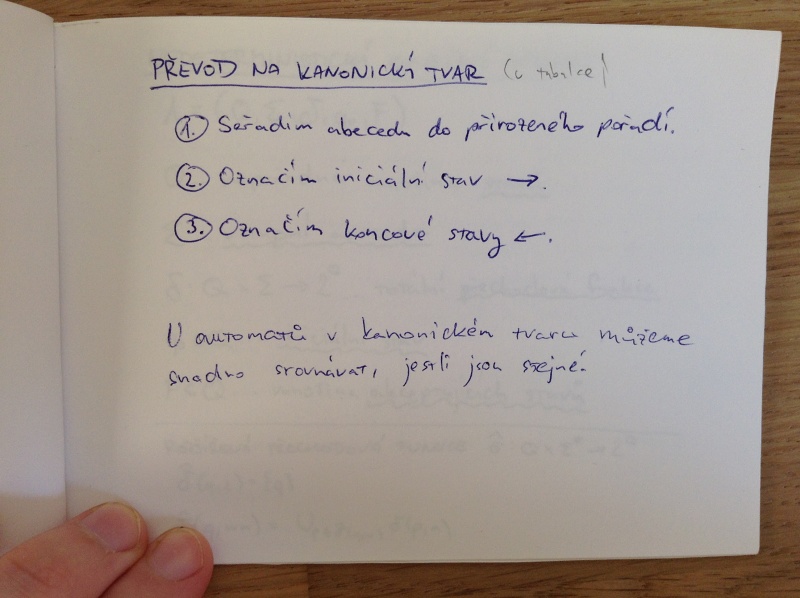 PŘEVOD NA KANONICKÝ TVAR (v tabulce)
1. Seřadím abecedu do přirozeného pořadí.
2. Označím iniciální stav →.
3. Označím koncové stavy ←.
U automatů v kanonickém tvaru můžeme
snadno srovnávat, jestli jsou stejné.